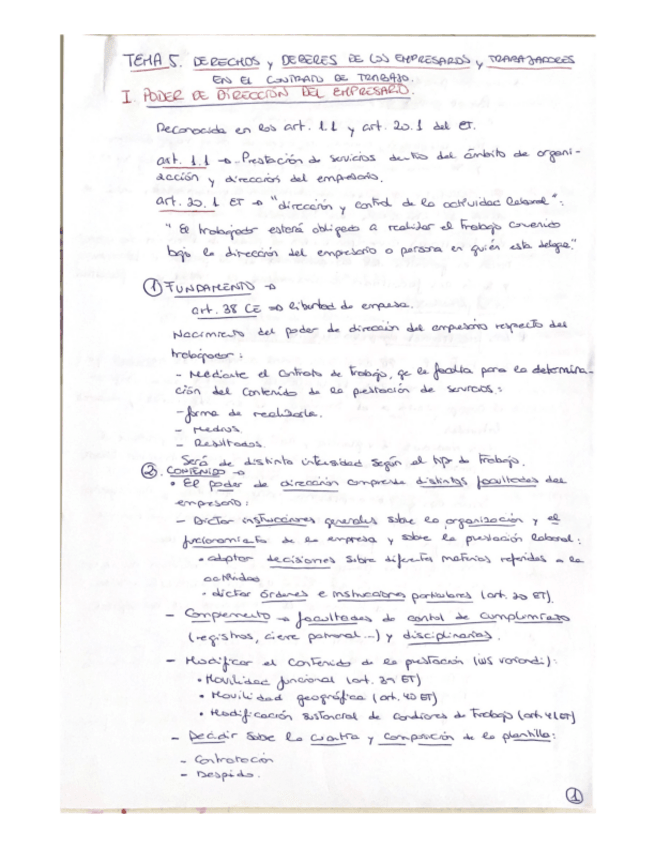 TEMA 5. DERECHOS y DEBERES DE LOS EMPRESARIOS y TRABAJADORES
EN EL CONTRATO DE TRABAJO.
I. PODER DE DIRECCIÓN DEL EMPRESARIO.
Reconocida en los art. 1.1 y art. 20.1 del ET.
art. 1.1 → Prestación de servicios dentro del ámbito de organi-
zación y dirección del empresario.
art. 20.1 ET → "dirección y control de la actividad laboral":
"El trabajador estará obligado a realizar el trabajo convenido
bajo la dirección del empresario o persona en quién esta delegue."
① FUNDAMENTO →
art. 38 CE → libertad de empresa.
Nacimiento del poder de dirección del empresario respecto del
trabajador:
- Mediante el Contrato de Trabajo, qe le faculta para la determina-
ción del contenido de la prestación de servicios:
- forma de realizarla.
- Medios.
- Resultados.
Será de distinta intensidad según el tipo de trabajo.
②. CONTENIDO →
• El poder de dirección comprende distintas facultades del
empresario:
- Dictar instrucciones generales sobre la organización y el
funcionamiento de la empresa y sobre la prestación laboral:
• adoptar decisiones sobre diferentes materias referidas a la
actividad.
• dictar órdenes e instrucciones particulares (art. 20 ET).
- Complemento → facultades de control de cumplimiento
(registros, cierre patronal...) y disciplinarias.
- Modificar el contenido de la prestación (ius variandi):
• Movilidad funcional (art. 39 ET)
• Movilidad geográfica (art. 40 ET)
• Modificación sustancial de condiciones de Trabajo (art. 41 ET)
- Decidir sobre la cuantía y composición de la plantilla:
- Contratación
- Despido.
①